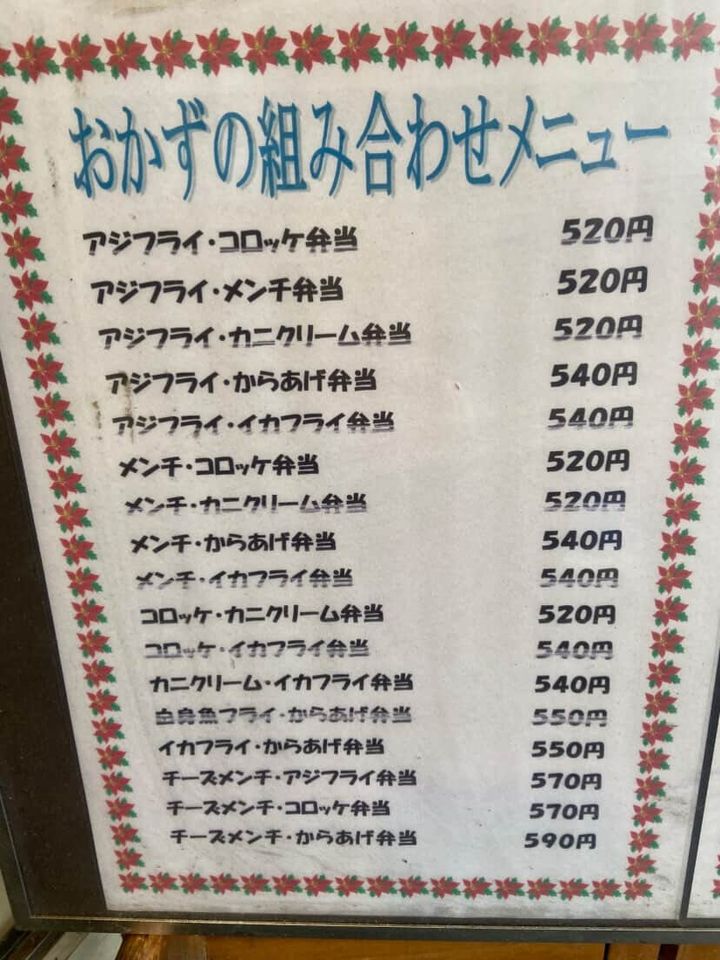 おかずの組み合わせメニュー
アジフライ・コロッケ弁当 520円
アジフライ・メンチ弁当 520円
アジフライ・カニクリーム弁当 520円
アジフライ・からあげ弁当 540円
アジフライ・イカフライ弁当 540円
メンチ・コロッケ弁当 520円
メンチ・カニクリーム弁当 520円
メンチ・からあげ弁当 540円
メンチ・イカフライ弁当 540円
コロッケ・カニクリーム弁当 520円
コロッケ・イカフライ弁当 540円
カニクリーム・イカフライ弁当 540円
白身魚フライ・からあげ弁当 550円
イカフライ・からあげ弁当 550円
チーズメンチ・アジフライ弁当 570円
チーズメンチ・コロッケ弁当 570円
チーズメンチ・からあげ弁当 590円